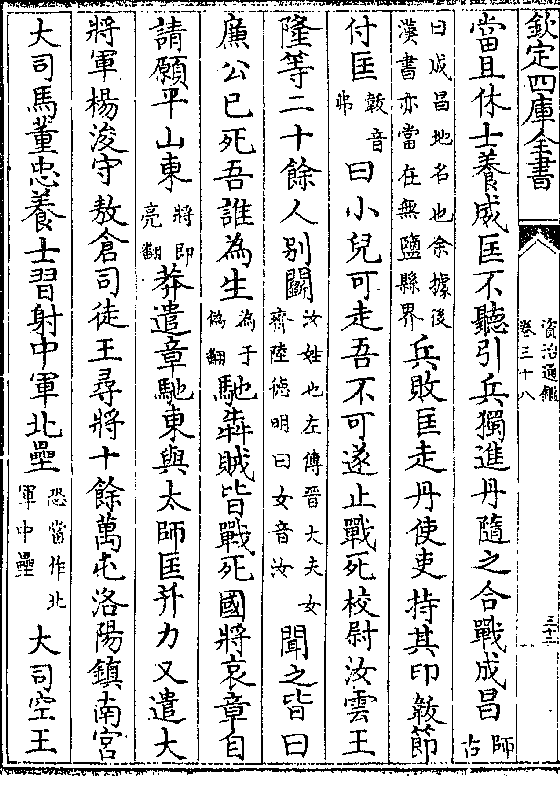 欽定四庫全書
資治通鑑
卷三十八
三十二
當且休士養威匡不聽引兵獨進丹隨之合戰成昌師古
曰成昌地名也余據後漢書亦當在無鹽縣界兵敗匡走丹使吏持其印韍節
付匡韍音弗曰小兒可走吾不可遂止戰死校尉汝雲王
隆等二十餘人别鬬汝姓也左傳晉大夫女齊陸德明曰女音汝聞之皆曰
廉公已死吾誰為生為于偽翻馳犇賊皆戰死國將哀章自
請願平山東將即亮翻莽遣章馳東與太師匡并力又遣大
將軍楊浚守敖倉司徒王尋將十餘萬屯洛陽鎮南宫
大司馬董忠養士習射中軍北壘恐當作北軍中壘大司空王